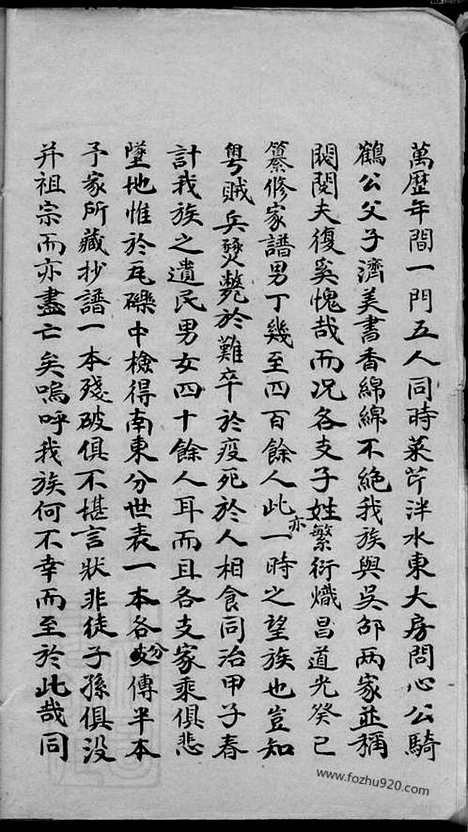 萬歷年間一門五人同時采芹泮水東大房問心公騎
鶴公父子濟美書香綿綿不絕我族與吳邵兩家並稱
閥閱夫復奚愧哉而况各支子姓繁衍熾昌道光癸巳
纂修家譜男丁幾至四百餘人此亦一時之望族也豈知
粵賊兵燹斃於難卒於疫死於人相食同治甲子春
計我族之遺民男女四十餘人耳而且各支家乘俱悲
墜地惟於瓦礫中檢得南東分世表一本各分支傳半本
予家所藏抄譜一本殘破俱不堪言狀非徒子孫俱沒
并祖宗而亦盡亡矣嗚呼我族何不幸而至於此哉同
www.fozhu920.com